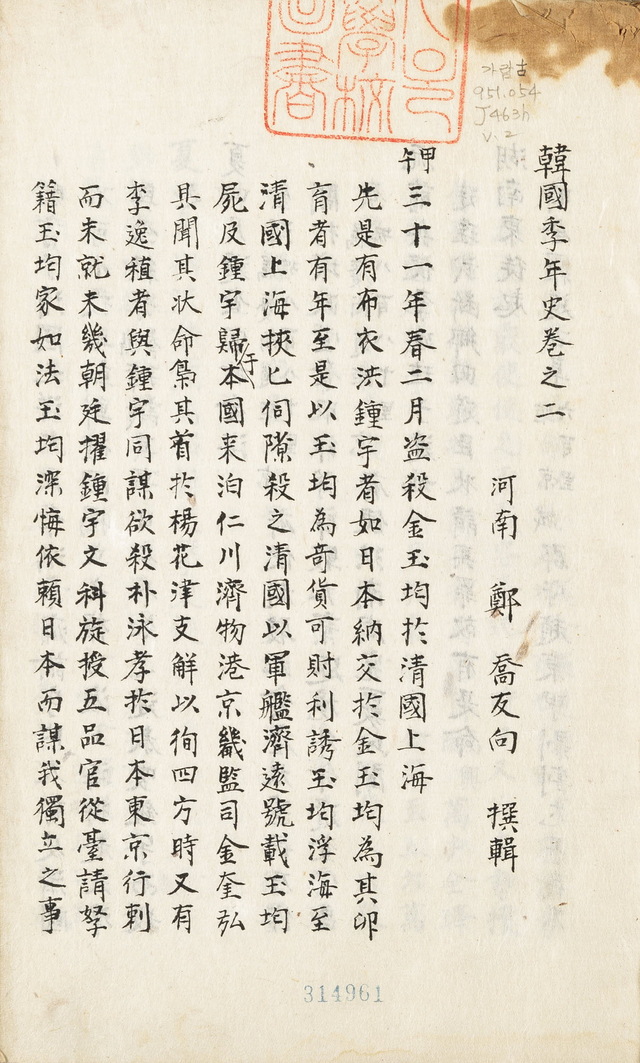 가람古
951.054
J463h
v.2
韓國季年史卷之二
河南 鄭 喬友向 撰輯
甲午
三十一年春二月盗殺金玉均於清國上海
先是有布衣洪鍾宇者如日本納交於金玉均為其卵
育者有年至是以玉均為奇貨可財利誘玉均浮海至
清國上海挾匕伺隙殺之清國以軍艦濟遠號載玉均
屍及鍾宇歸于本國来泊仁川濟物港京畿監司金奎弘
具聞其状命梟其首於楊花津支解以徇四方時又有
李逸稙者與鍾宇同謀欲殺朴泳孝於日本東京行刺
而未就未幾朝廷擢鍾宇文科旋授五品官從臺請孥
籍玉均家如法玉均深悔依頼日本而謀我獨立之事
314961